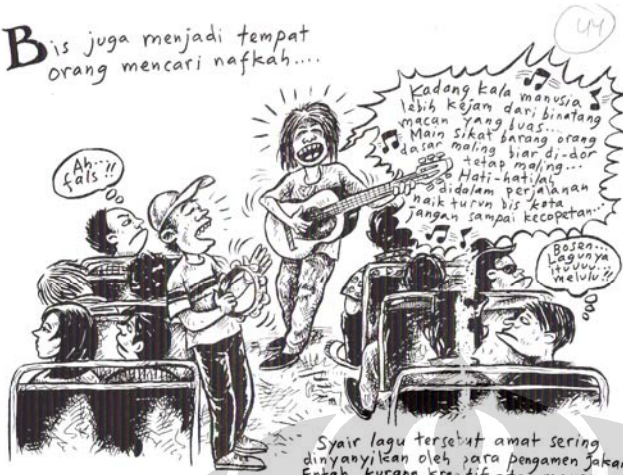 44
Bis juga menjadi tempat
orang mencari nafkah....
Kadang kala manusia
lebih kejam dari binatang
macan yang buas...
Main sikat barang orang
dasar maling biar di-dor
tetap maling...
Hati-hatilah
didalam perjalanan
naik turun bis kota
jangan sampai kecopetan...
Ah...
fals!!
Bosen...
Lagunya
ituuuu...
melulu!!
Syair lagu tersebut amat sering
dinyanyikan oleh para pengamen Jakar